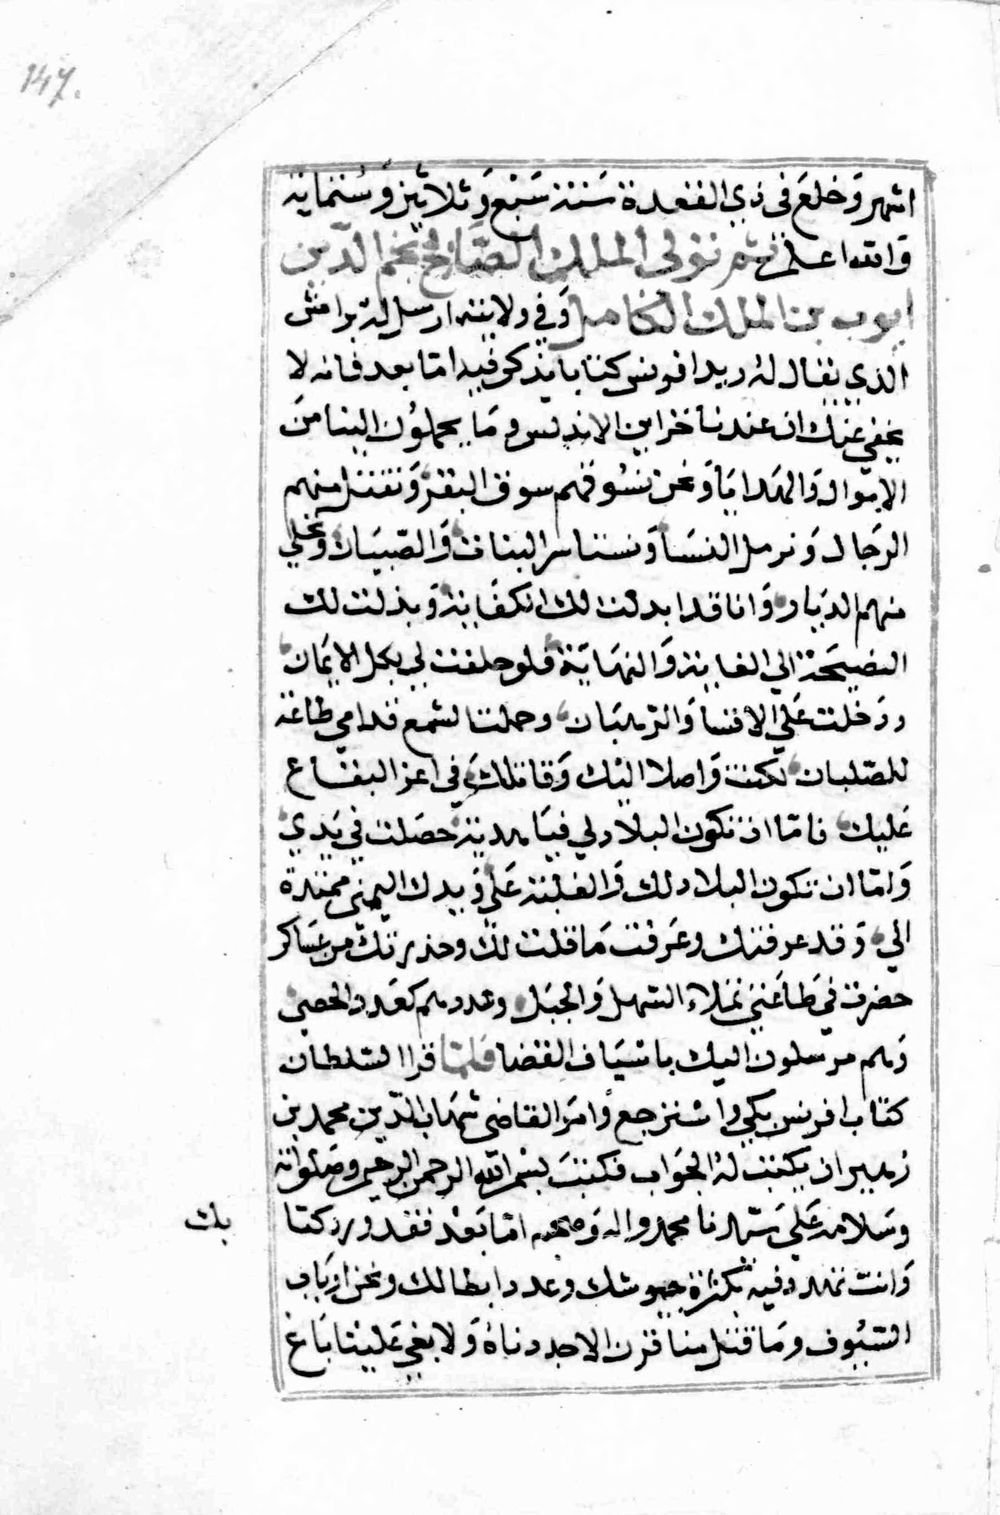 147.
اشهر وَخلعَ فى ذي القعدة سَنة سَبْع وَثلاثين وَستماية
وَالله اعلم ثم تولى الملك الصَّالح نجم الدّين
ايوب بن الملك الكامل وَفي ولايته ارسل له برامش
الذي يقال له ريدافرنس كتابا يذكر فيه امّا بعد فانه لا
يخفي عنك ان عندنا خزاين الاندلس وَمَا يحملوُن الينا منَ
الاموال وَالهدايَا وَنحن نسُوقهم سوق البقر وَنقتل منهم
الرجَال وَنرمل النسَا وَنستاسر البنات وَالصّبيَان ونخلي
منهم الديَار وَانا قد ابديت لك الكفَاية وَبذلت لك
النصيحَة الي الغاية وَالنهَايَة فلو حلفت لي بكل الايمَان
ودَخلت عَلي الاقسا وَالرّهبَان وحملت الشمع قدامي طاعة
للصّلبان لكنت وَاصلا اليْك وَقاتلكَ في اعز البقاع
عَليك فامّا ان تكون البلاد لي فيَا هدية حصَلت في يَدي
وَامّا ان تكون البلاد لك وَالغلبَة عَليّ فيدك اليمني ممتدة
الي وَقد عرفتك وعَرفت مَا قلت لك وحذرتك من عسَاكر
حضرت في طاعَتي تملاء السّهل وَالجبَل وعددهم كعَدد الحصي
وَهم مرسلون اليك باسْيَاف القضا فلمّا قرا السّلطان
كتاب افرنس بكي وَاسْترجع وَامرَ القاضي شهَاب الدّين محمد بن
زهير ان يكتبَ لهُ الجوَاب فكتبَ بسْم الله الرحمن الرحيم وصَلوَاته
وسَلامه عَلي سَيدنا محمد واله وَصَحبه امّا بَعْد فقد ورد كتا
بك
وَانت تهدد فيه بكثرة جيوشك وعدد ابطالك ونحن ارباب
السّيُوف ومَا قتل منا قرن الا جددناهُ وَلا بغي عَليْنا بَاغ